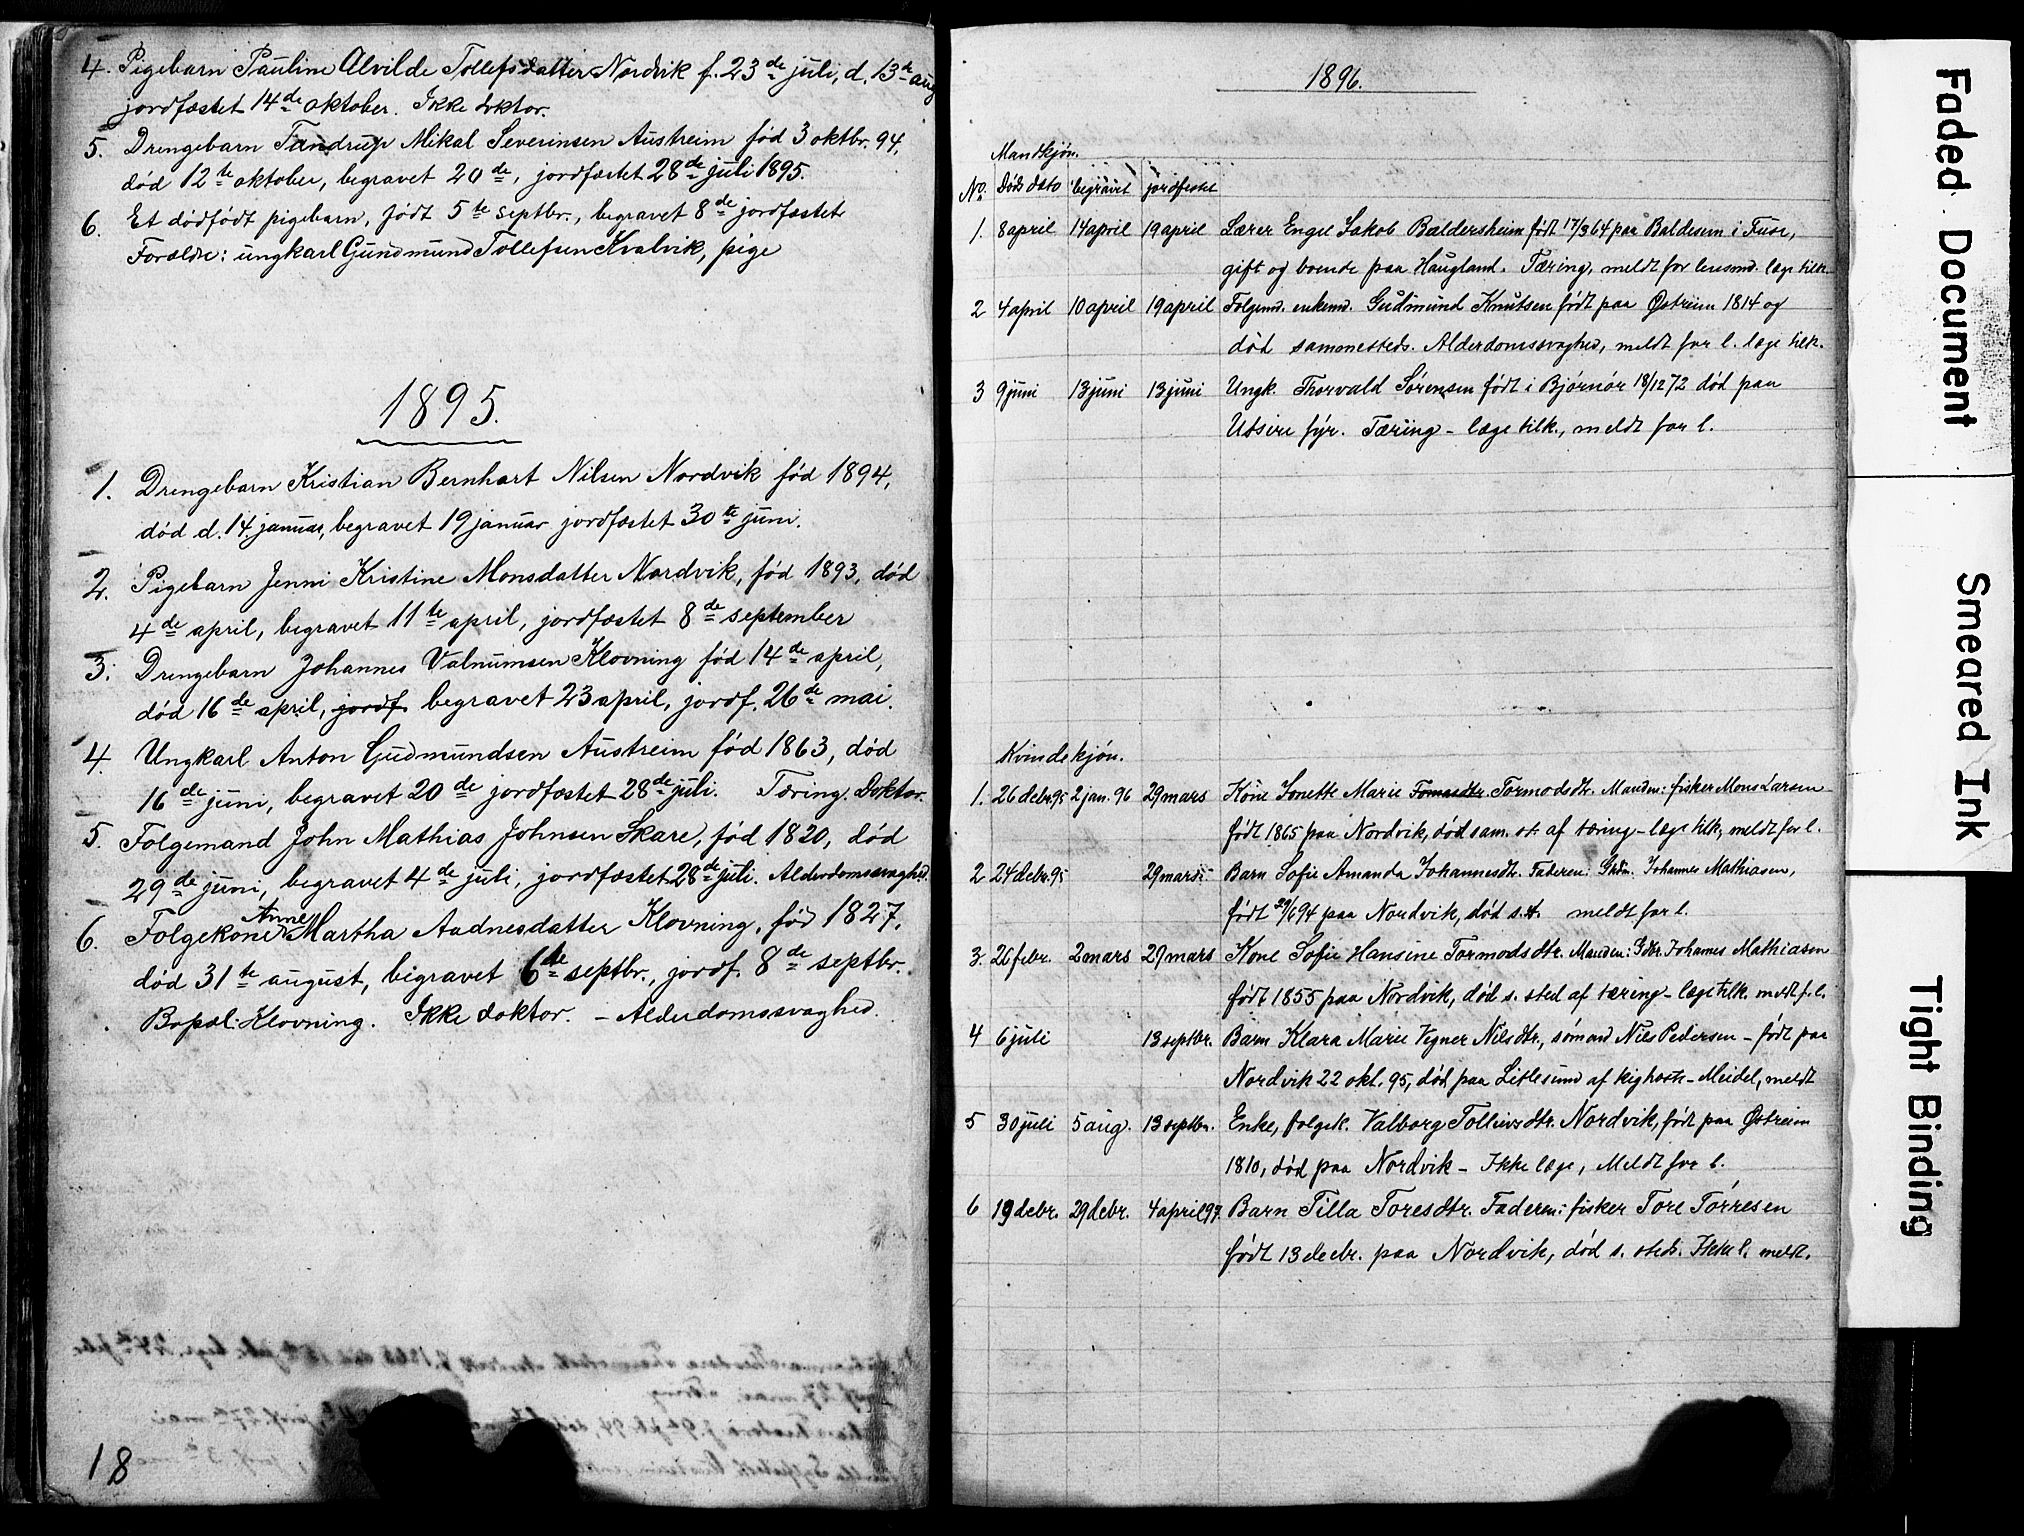 4. Pigebarn Pauline Alvilde Tollefsdatter Nordvik f. 23de juli, d. 13de aug
jordfæstet 14de oktober. Ikke doktor.
5. Drengebarn Tandrup Mikal Severinsen Austreim fød 3 oktbr. 94,
død 12te oktober, begravet 20de, jordfæstet 28de juli 1895.
6. Et dødfødt pigebarn, født 5te septbr., begravet 8de jordfæstet
Forældre: ungkarl Gundmund Tollefsen Kvalvik, pige
1895.
1. Drengebarn Kristian Bernhart Nilsen Nordvik fød 1894,
død d. 14. januar, begravet 19 januar jordfæstet 30te juni.
2. Pigebarn Jenni Kristine Monsdatter Nordvik, fød 1893, død
4de april, begravet 11te april, jordfæstet 8de september
3. Drengebarn Johannes Valnumsen Klovning fød 14de april,
død 16de april, jordf. begravet 23 april, jordf. 26de mai.
4. Ungkarl Anton Gudmundsen Austreim fød 1863, død
16de juni, begravet 20de jordfæstet 28de juli. Tæring. Doktor.
5. Folgemand John Mathias Johnsen Skare, fød 1820, død
29de juni, begravet 4de juli, jordfæstet 28de juli. Alderdomssvaghed.
6. Folgekone Anne Martha Aadnesdatter Klovning, fød 1827,
død 31te august, begravet 6te septbr., jordf. 8de septbr.
Bopæl: Klovning. Ikke doktor. - Alderdomssvaghed.
18
1896.
Mandkjøn.
No. Dødsdato begravet jordfestet
1. 8 april 14 april 19 april Lærer Engel Jakob Baldersheim født 17/3 64 paa Baldesem i Fuse,
gift og boende paa Haugland. Tæring, meldt for lensmd. læge tilk.
2 4 april 10 april 19 april Folgemd. enkemd. Gudmund Knutsen født paa Østreim 1814 og
død sammesteds. Alderdomssvaghed, meldt for l. læge tilk.
3 9 juni 13 juni 13 juni Ungk. Thorvald Sørensen født i Bjørnør 18/12 72 død paa
Utsire fyr. Tæring - læge tilk., meldt for l.
Kvindekjøn.
1. 26 debr 95 2 jan. 96 29 mars Kone Jonette Marie Tomasdtr. Tormodsdtr. Manden: fisker Mons Larsen
født 1865 paa Nordvik, død sam. st. af tæring - læge tilk., meldt for l.
2 24 debr. 95 29 mars Barn Sofie Amanda Johannesdtr. Faderen: Gbdr. Johannes Mathiasen,
født 29/6 94 paa Nordvik, død s. st. meldt for l.
3. 26 febr. 2 mars 29 mars Kone Sofie Hansine Tormodsdtr. Manden: Gdbr. Johannes Mathiasen
født 1855 paa Nordvik, død s. sted af tæring - læge tilk. meldt f. l.
4 6 juli 13 septbr. Barn Klara Marie Vegner Nilsdtr., sømand Nils Pedersen - født paa
Nordvik 22 okt. 95, død paa Litlesund af kighoste - Meidel, meldt
5 30 juli 5 aug. 13 septbr. Enke, folgek. Valborg Tollievsdtr. Nordvik, født paa Østreim
1810, død paa Nordvik - Ikke læge, Meldt for l.
6 19 debr. 29 debr. 4 april 97 Barn Tilla Toresdtr. Faderen: fisker Tore Tørresen
født 13 decbr. paa Nordvik, død s. steds. Ikke l. meldt.
Faded Document
Smeared Ink
Tight Binding